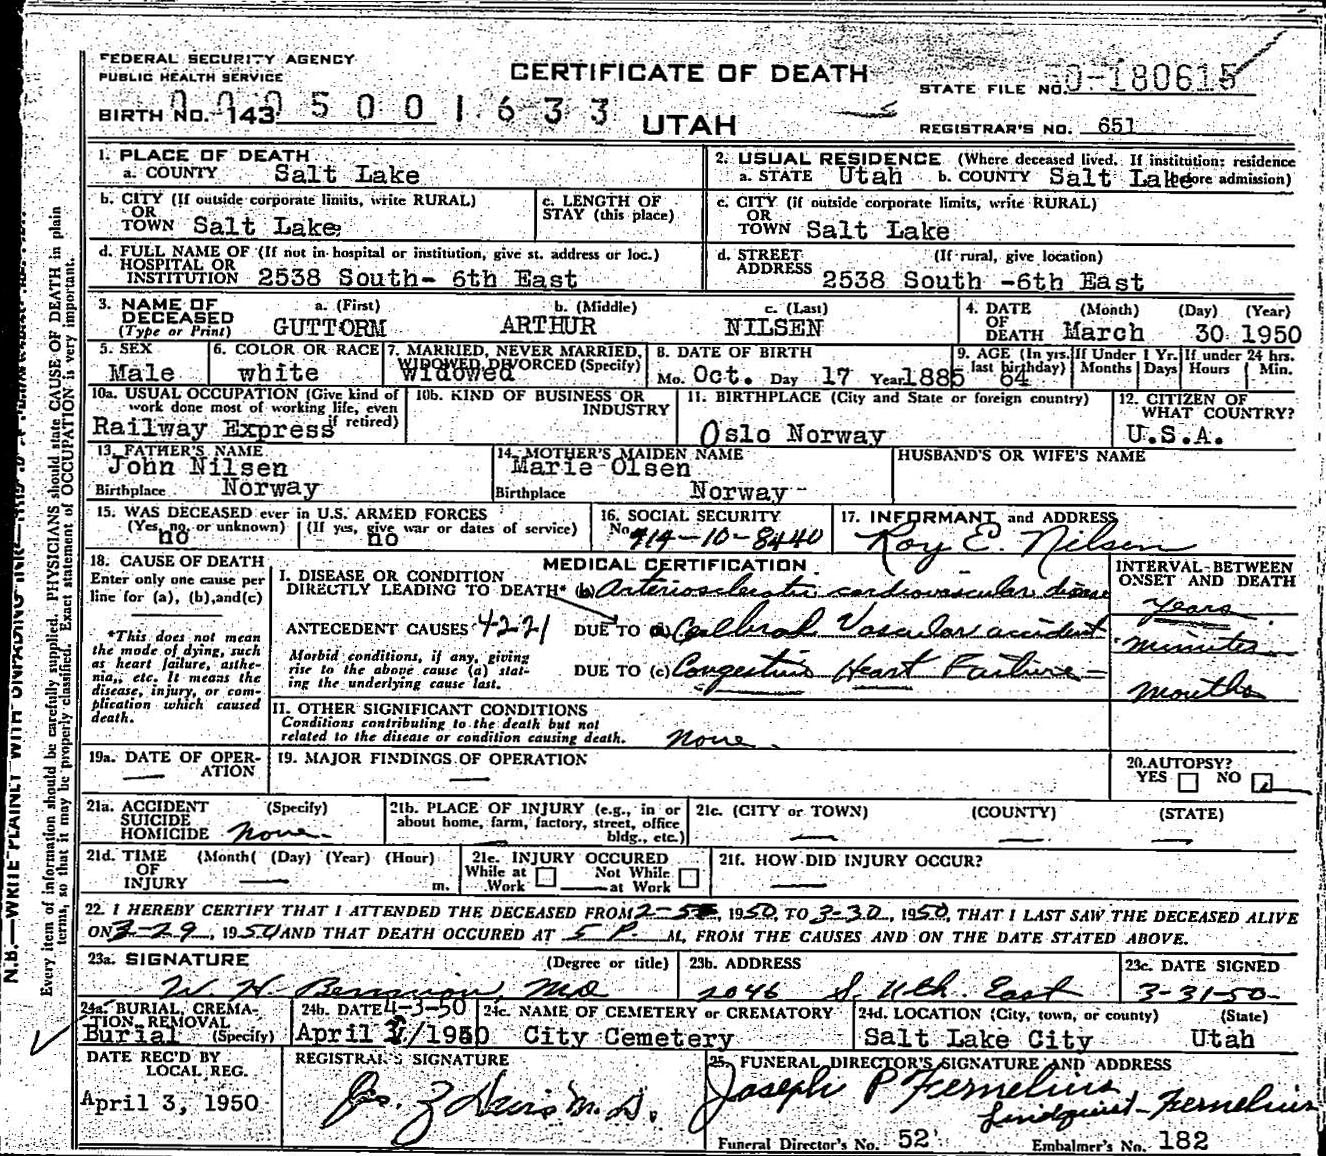 FEDERAL SECURITY AGENCY
PUBLIC HEALTH SERVICE
CERTIFICATE OF DEATH
STATE FILE NO. 50-180615
BIRTH NO. 143 0005001633
UTAH
REGISTRAR'S NO. 651
1. PLACE OF DEATH
a. COUNTY Salt Lake
2. USUAL RESIDENCE (Where deceased lived. If institution: residence before admission)
a. STATE Utah b. COUNTY Salt Lake
b. CITY (If outside corporate limits, write RURAL)
OR
TOWN Salt Lake
c. LENGTH OF
STAY (this place)
c. CITY (if outside corporate limits, write RURAL)
OR
TOWN Salt Lake
d. FULL NAME OF (If not in hospital or institution, give st. address or loc.)
HOSPITAL OR
INSTITUTION 2538 South- 6th East
d. STREET (If rural, give location)
ADDRESS 2538 South -6th East
3. NAME OF DECEASED (Type or Print)
a. (First) b. (Middle) c. (Last)
GUTTORM ARTHUR NILSEN
4. DATE OF DEATH (Month) (Day) (Year)
March 30 1950
5. SEX
Male
6. COLOR OR RACE
white
7. MARRIED, NEVER MARRIED,
WIDOWED DIVORCED (Specify)
widowed
8. DATE OF BIRTH
Mo. Oct. Day 17 Year 1885
9. AGE (In yrs. last birthday) 64
If Under 1 Yr. Months Days
If under 24 hrs. Hours Min.
10a. USUAL OCCUPATION (Give kind of
work done most of working life, even
if retired)
Railway Express
10b. KIND OF BUSINESS OR
INDUSTRY
11. BIRTHPLACE (City and State or foreign country)
Oslo Norway
12. CITIZEN OF
WHAT COUNTRY?
U.S.A.
13. FATHER'S NAME
John Nilsen
Birthplace Norway
14. MOTHER'S MAIDEN NAME
Marie Olsen
Birthplace Norway
HUSBAND'S OR WIFE'S NAME
15. WAS DECEASED ever in U.S. ARMED FORCES
(Yes, no, or unknown) (If yes, give war or dates of service)
no no
16. SOCIAL SECURITY
No. 714-10-8440
17. INFORMANT and ADDRESS
Roy E. Nilsen
18. CAUSE OF DEATH
Enter only one cause per
line for (a), (b), and (c)
*This does not mean
the mode of dying, such
as heart failure, asthe-
nia, etc. It means the
disease, injury, or com-
plication which caused
death.
MEDICAL CERTIFICATION
INTERVAL BETWEEN
ONSET AND DEATH
I. DISEASE OR CONDITION
DIRECTLY LEADING TO DEATH* (b) Arteriosclerotic cardiovascular disease years
ANTECEDENT CAUSES 4221 DUE TO (a) Cerebral Vascular accident minutes
Morbid conditions, if any, giving
rise to the above cause (a) stat-
ing the underlying cause last.
DUE TO (c) Congestive Heart Failure months
II. OTHER SIGNIFICANT CONDITIONS
Conditions contributing to the death but not
related to the disease or condition causing death. None
19a. DATE OF OPER-
ATION —
19. MAJOR FINDINGS OF OPERATION
—
20. AUTOPSY?
YES NO
21a. ACCIDENT (Specify)
SUICIDE
HOMICIDE None
21b. PLACE OF INJURY (e.g., in or
about home, farm, factory, street, office
bldg., etc.)
21c. (CITY or TOWN) (COUNTY) (STATE)
— — —
21d. TIME (Month) (Day) (Year) (Hour)
OF
INJURY — m.
21e. INJURY OCCURED
While at Work Not While at Work
21f. HOW DID INJURY OCCUR?
—
22. I HEREBY CERTIFY THAT I ATTENDED THE DECEASED FROM 2-5, 1950, TO 3-30, 1950, THAT I LAST SAW THE DECEASED ALIVE
ON 3-29, 1950 AND THAT DEATH OCCURED AT 5 P. M., FROM THE CAUSES AND ON THE DATE STATED ABOVE.
23a. SIGNATURE (Degree or title)
MD
23b. ADDRESS
2046 S East
23c. DATE SIGNED
3-31-50
24a. BURIAL, CREMA-
TION, REMOVAL
Burial (Specify)
24b. DATE 4-3-50
April /1950
24c. NAME OF CEMETERY or CREMATORY
City Cemetery
24d. LOCATION (City, town, or county) (State)
Salt Lake City Utah
DATE REC'D BY
LOCAL REG.
April 3, 1950
REGISTRAR'S SIGNATURE
M.D.
25. FUNERAL DIRECTOR'S SIGNATURE AND ADDRESS
Joseph P Fernelius
Lindquist-Fernelius
Funeral Director's No. 52
Embalmer's No. 182
N.B.—WRITE PLAINLY WITH UNFADING INK
Every item of information should be carefully supplied. PHYSICIANS should state CAUSE OF DEATH in plain
terms, so that it may be properly classified. Exact statement of OCCUPATION is very important.